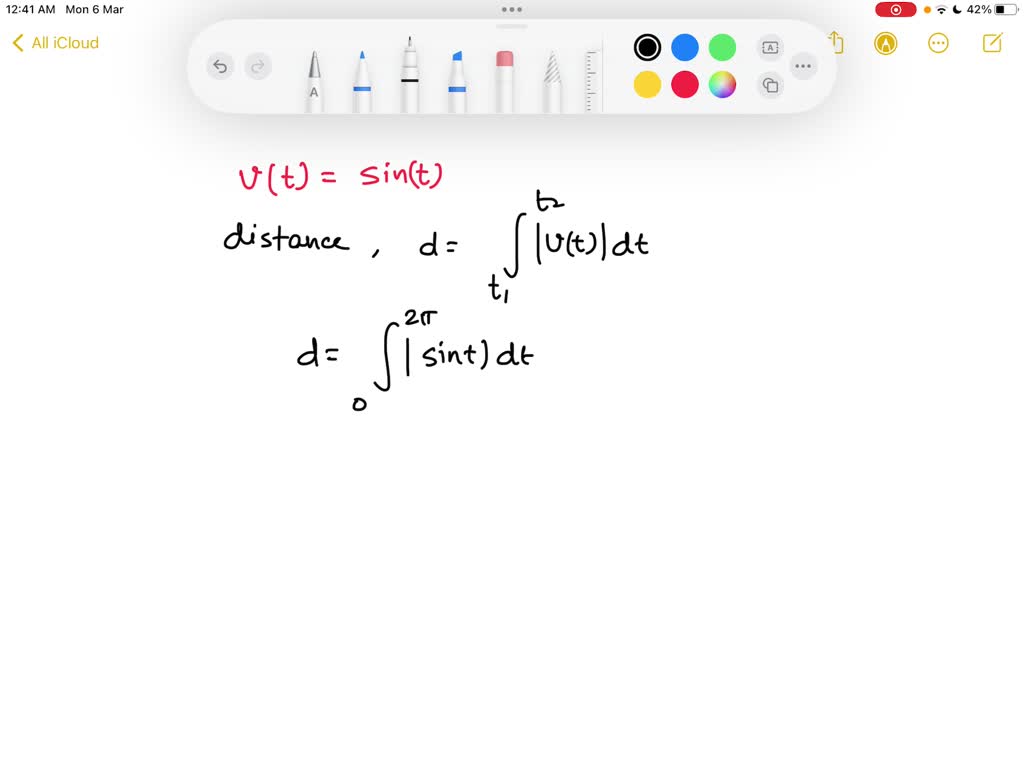 12:41 AM Mon 6 Mar 42%
All iCloud
A
A
v(t) = sin(t)
distance, d = ∫_{t₁}^{t₂} |v(t)| dt
d = ∫_{0}^{2π} | sint) dt